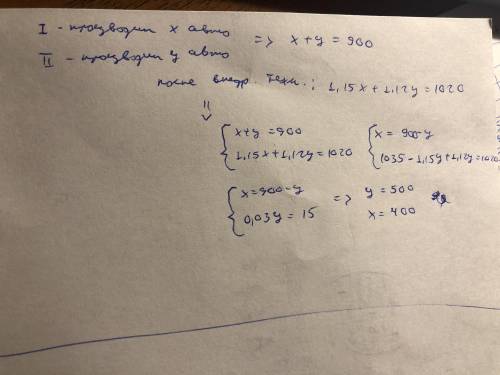 I - производил x авто => x + y = 900
II - производил y авто
после внедр. техн.: 1,15x + 1,12y = 1020
x + y = 900
1,15x + 1,12y = 1020
x = 900 - y
1035 - 1,15y + 1,12y = 1020
x = 900 - y
0,03y = 15
=> y = 500
x = 400